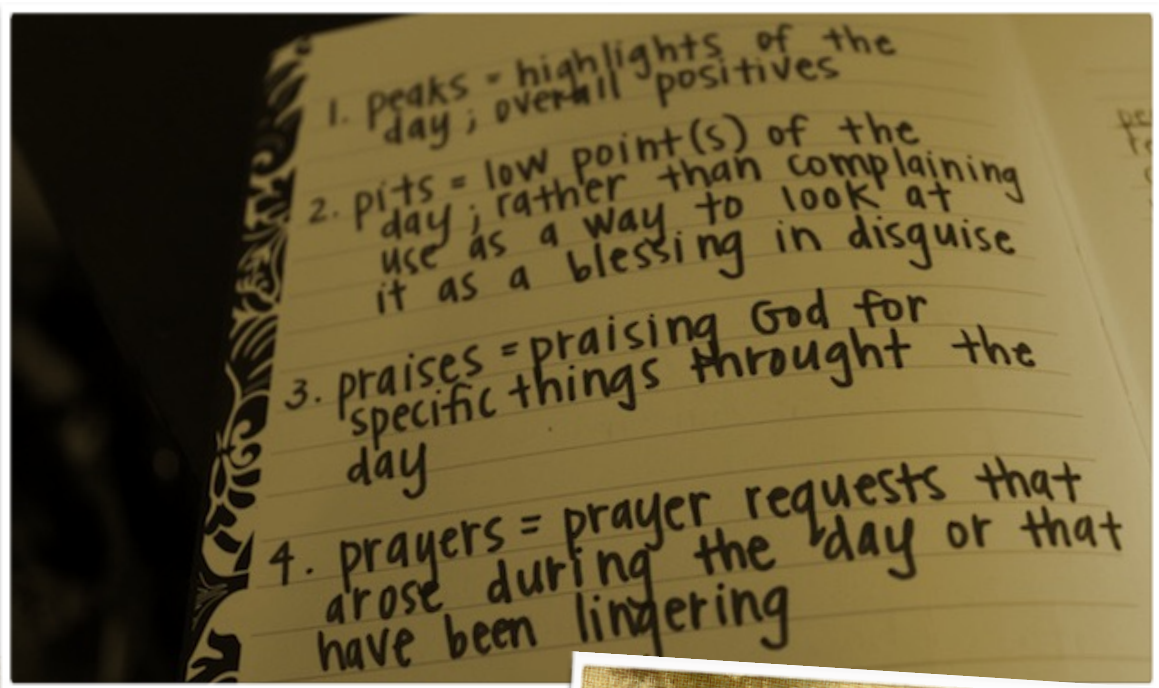 1. peaks = highlights of the
day; overall positives
2. pits = low point(s) of the
day; rather than complaining
use as a way to look at
it as a blessing in disguise
3. praises = praising God for
specific things throught the
day
4. prayers = prayer requests that
arose during the day or that
have been lingering